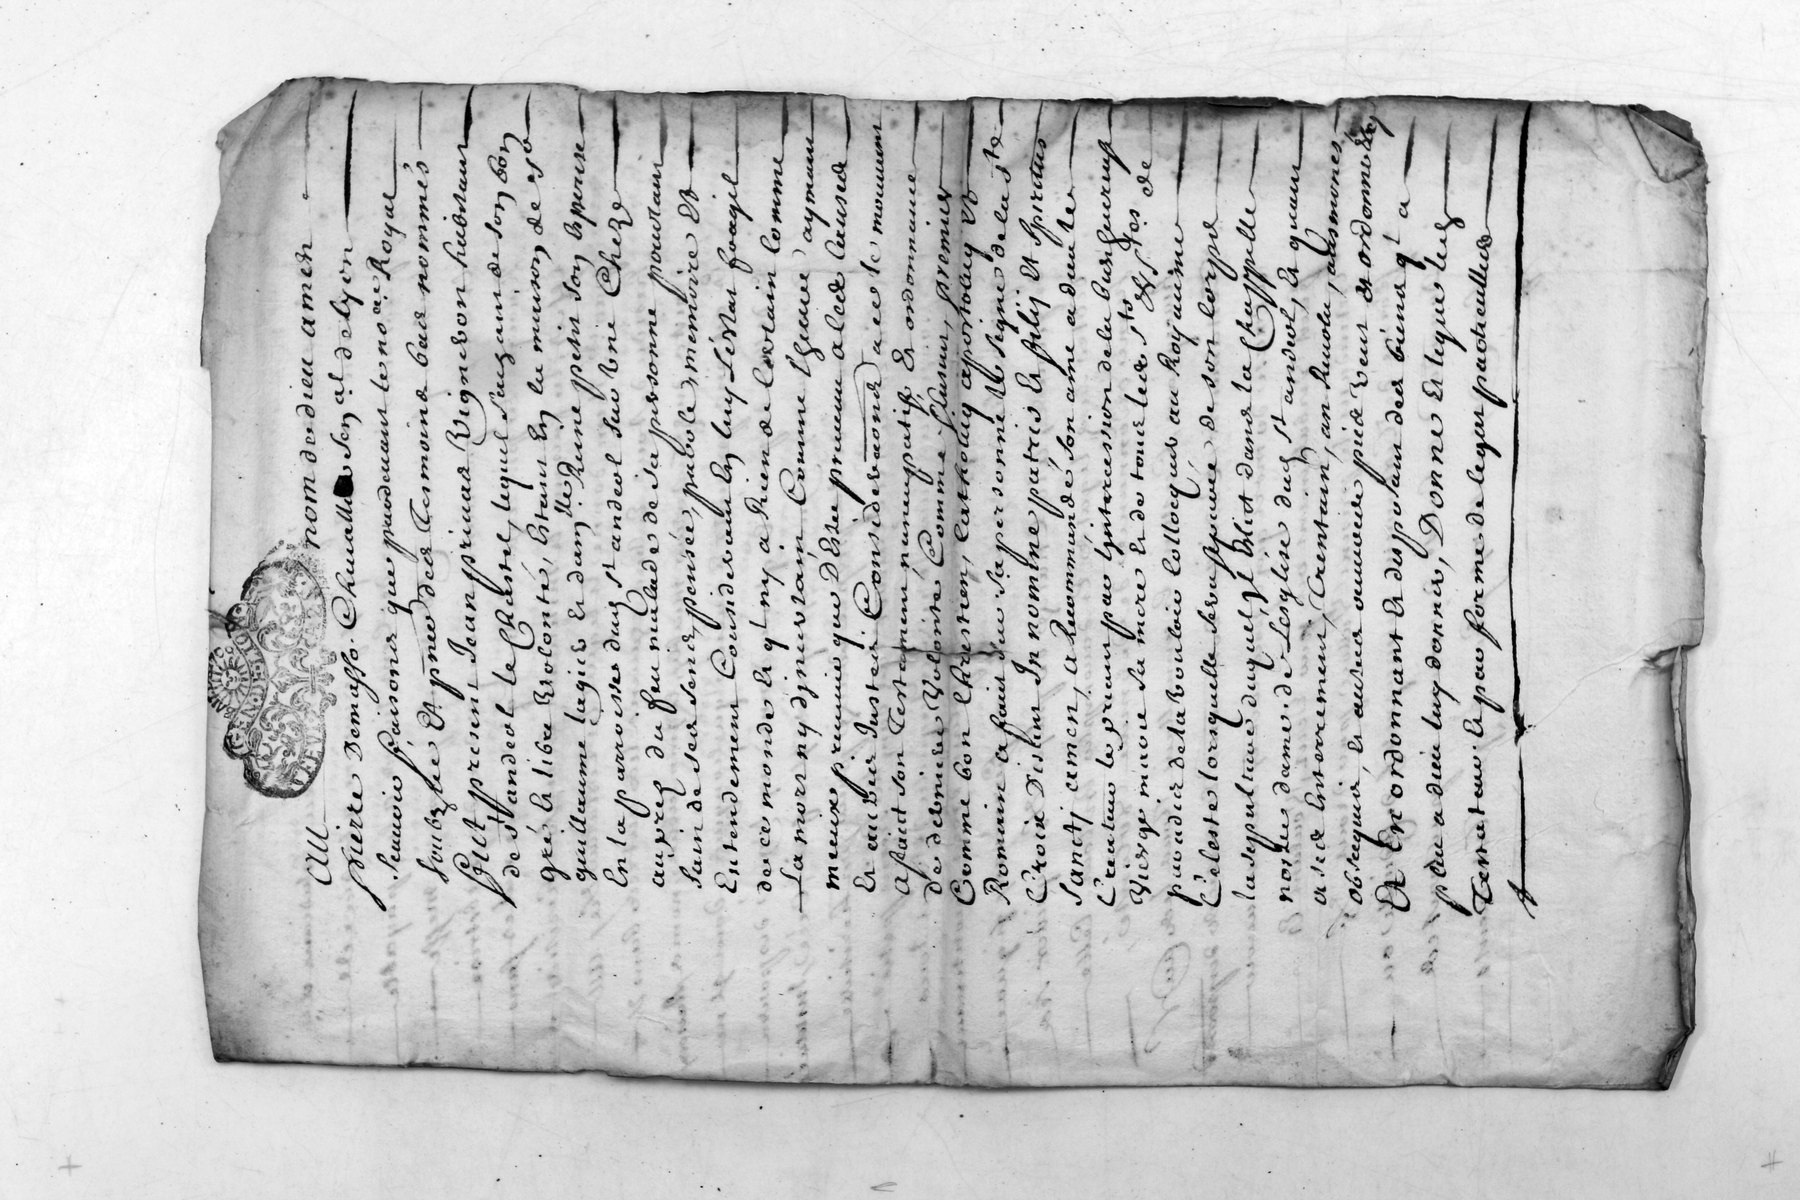 Au nom de dieu amen
pierre Demasso Chevallier Sen.al de lyon
scavoir faisons que pardevant le no.re Royal
soubz.ne Et pnce des tesmoins bas nommés
fut present Jean privas Vigneron habitant
de st andeol le Chastel, lequel sachant de son bon
gré et libre Volonté, estant En la maison de sr
guillaume lagier Et dam.lle Anne petit son espouse
En la parroisse dud st andeol sur Une Cheze
aupres du feu malade de sa personne pourtant
sain de ses sens, pensée, parole, memoire Et
Entendement Considerant En luy l'estat fragil
de ce monde Et q'l ny a Rien de Certain Comme
la mort ny d'jncertain Comme l'heure aymant
mieux prevenir que D'Estre prevenu a les causes
Et autres Justes Considerations a ce le mouvant
a faict son Testament nuncupatif, Et ordonnance
de derniere Volonté Comme s'ensuit, premier
Comme bon Chrestien, Catholicq apostolicq Et
Romain a fait sur sa personne le signe de la ste
Croix Disant In nomine patris Et filij Et spiritus
Sancti amen, a Recommandé son ame a dieu le
Createur le priant par L'jntercession de la bienheureuse
Vierge marie sa mere Et de tous les sts & stes de
paradis de la Vouloir Collocquer au Royaume
Celeste lorsquelle sera separée de son Corps
la sepulture duquel jl Eslit dans la Chappelle
nostre dame de L'esglise dud st andeol, Et quant
a ses Enterrement, Trentain, an Revolu, aumosnes
obseques, Et autres oeuvres pies Veut Et ordonne
Et En ordonnant Et disposant des biens q'l a
pleu a dieu luy donner, Donne Et legue led
Testateur Et par forme de legat particulier